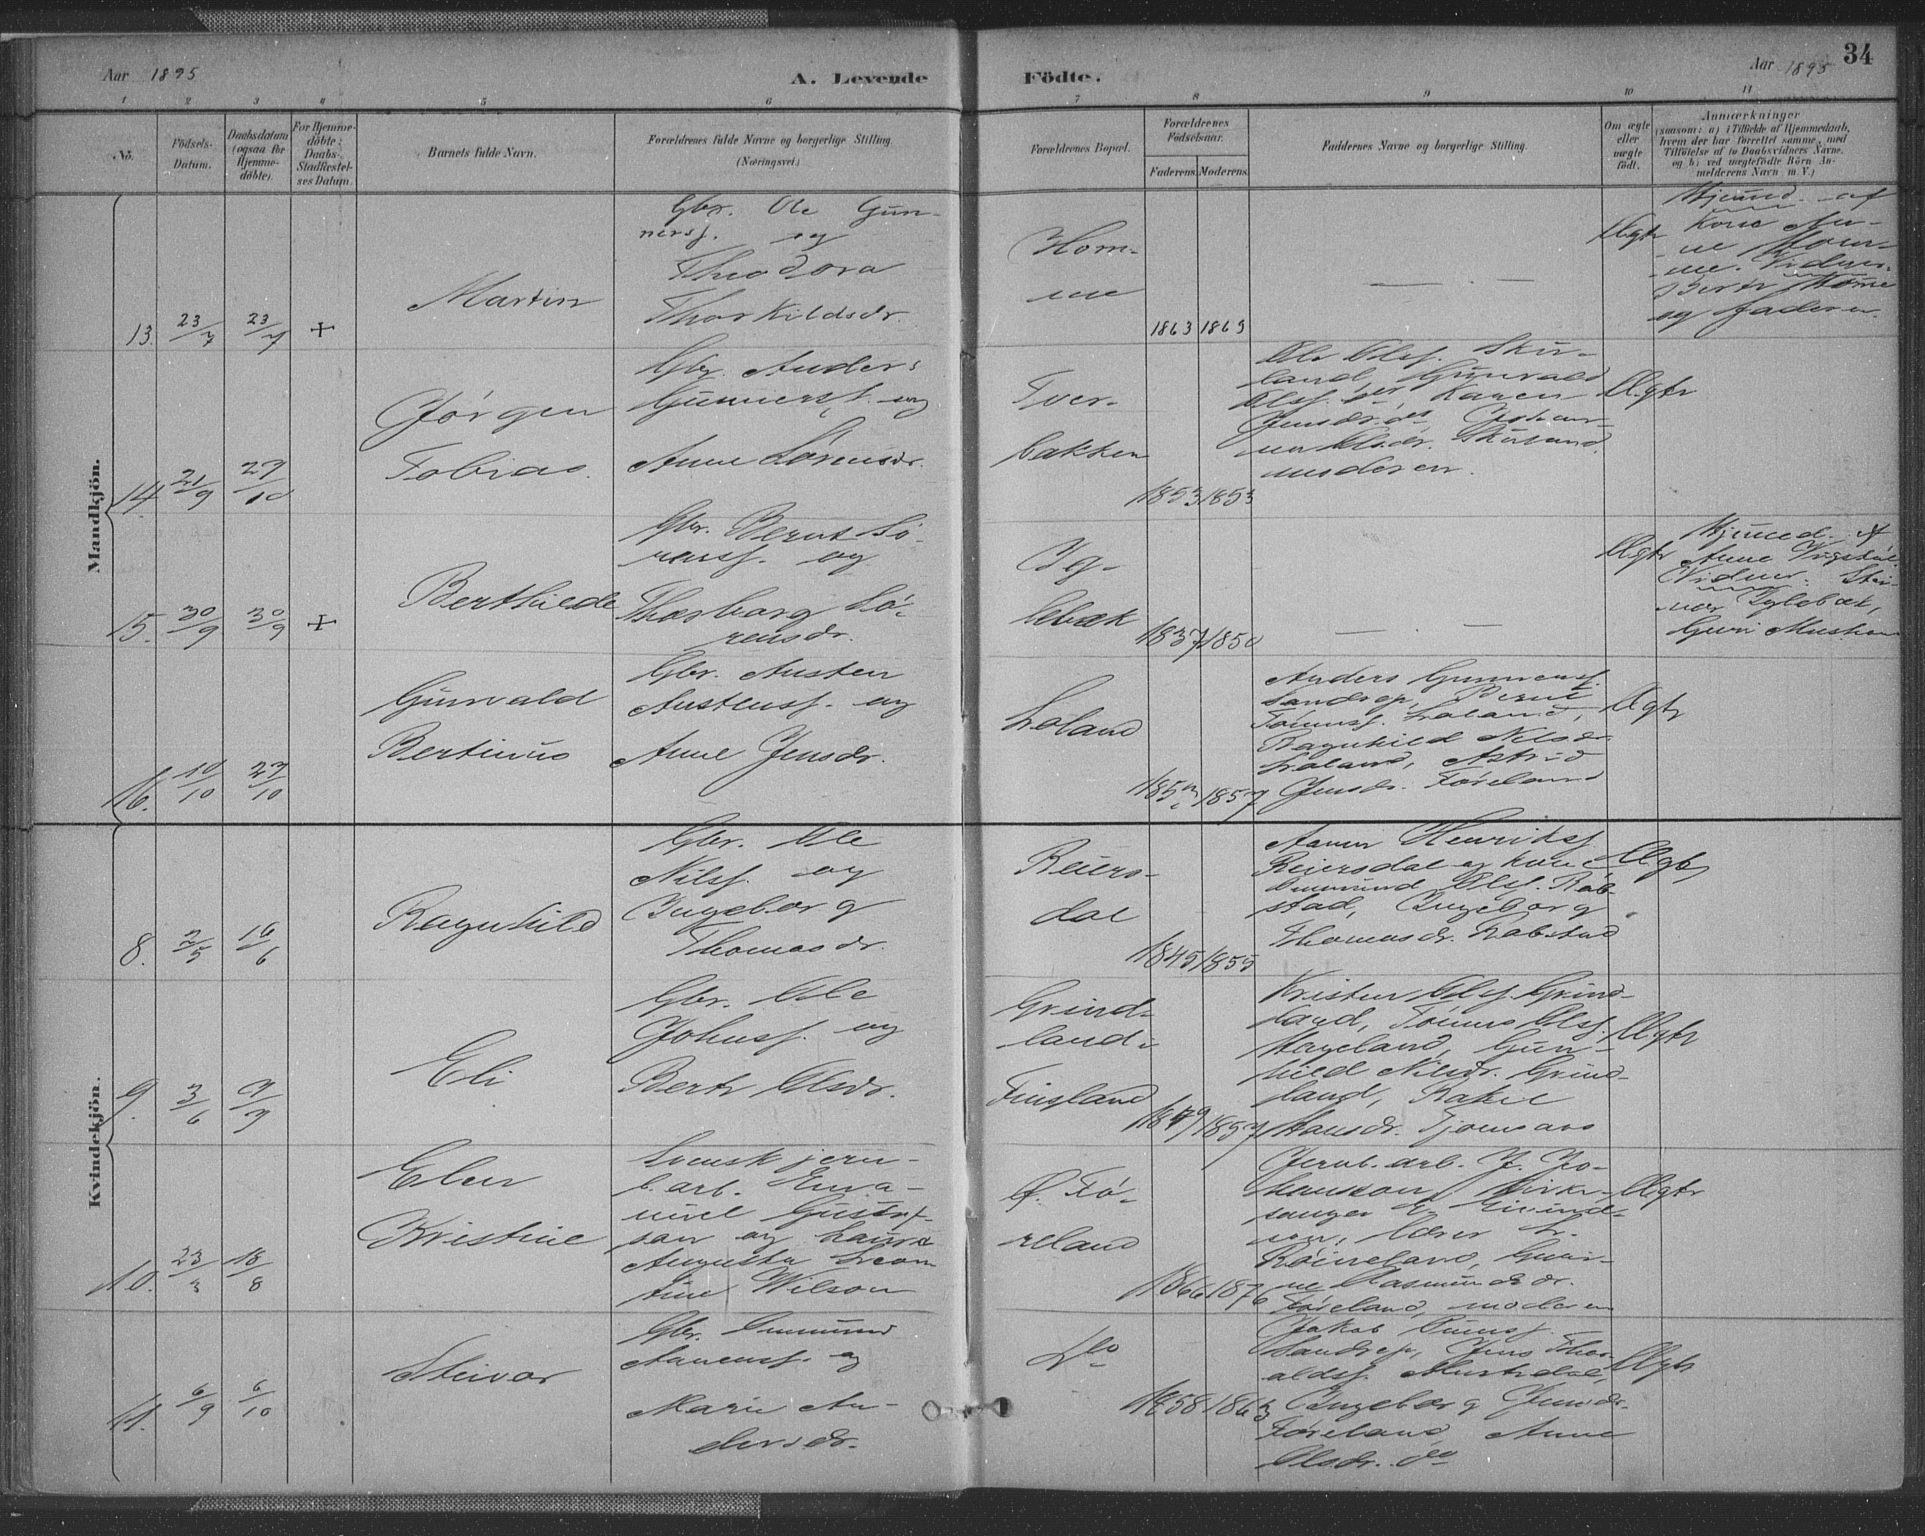 Aar 1895
A. Levende
Födte.
Aar 1895
34
1 2 3 4 5 6 7 8 9 10 11
No.
Födsels-
Datum.
Daabsdatum
(ogsaa for
Hjemme-
döbte).
For Hjemme-
döbte:
Daabs-
Stadfæstel-
ses Datum.
Barnets fulde Navn.
Forældrenes fulde Navne og borgerlige Stilling.
(Næringsvei.)
Forældrenes Bopæl.
Forældrenes
Födselsaar.
Faderens. Moderens.
Faddernes Navne og borgerlige Stilling.
Om ægte
eller
uægte
födt.
Anmærkninger
(saasom: a) i Tilfælde af Hjemmedaab,
hvem der har forrettet samme, med
Tilföielse af to Daabsvidners Navne.
og b) ved uægtefödte Börn An-
melderens Navn m. V.)
Mandkjön.
13. 23/7 23/7 +
Martin
Gbr. Ole Gun-
nersf. og
Theodora
Thorkildsdr.
Hom-
me
1863 1869
— —
Ægte
Hjemmed. af
Kone An-
ne Hom-
me. Vidner:
Berte Homme
og faderen.
14. 21/9 27/10
Jørgen
Tobias.
Gbr. Anders
Gunnersf. og
Anne Sørensdr.
Tver-
bakken
1853 1853
Ole Olsf. Skue-
land, Gunvald
Olsf. do, Karen
Jensdr. do, Johan-
ne Olsdr. Skueland,
moderen.
Ægte
15. 30/9 30/9 +
Berthilde
Gbr. Bernt Sø-
rensf. og
Thorborg Sø-
rensdr.
Ig-
lebæk
1837 1850
— —
Ægte
Hjemmed. af
Anne
Vidner:
Iglebæk,
16. 10/10 27/10
Gunvald
Bertinus
Gbr. Austen
Austensf. og
Anne Jensdr.
Loland
1857
Anders Gunnersf.
Sandrep, Bernt
Tønnesf. Loland,
Ragnhild Nilsdr.
Loland, Astrid
Jensdr. Føreland
Ægte
Kvindekjön.
8. 2/5 16/6
Ragnhild
Gbr. Ole
Nilsf. og
Ingeborg
Thomasdr.
Reiers-
dal
1845 1855
Aanen Henriksf.
Reiersdal og kone,
Ommund Olsf. Rob-
stad, Ingeborg
Thomasdr. Robstad
Ægte
9. 3/6
Eli
Gbr. Ole
Johnsf. og
Berte Olsdr.
Grind-
land i
Finsland
1849 1857
Kristen Olsf. Grind-
land, Tønnes Olsf.
Hageland, Gun-
hild Nilsdr. Grind-
land, Rakel
Hansdr. Tjomsaas
Ægte
10. 23/3 18/8
Elen
Kristine
Svensk jern-
b. arb. Ema-
nuel Gustaf-
son og Laura
Augusta Leon-
tine Wilson
Ø. Fø-
reland
1866 1876
Jernb. arb. J. Jo-
hanson, Kirke-
sanger E. Eivind-
son, Lærer L.
Røineland, Gun-
ne Aasmundsdr.
Føreland, moderen
Ægte
11. 6/9 6/10
Steivor
Gbr. Ommund
Aanensf. og
Marie An-
dersdr.
do
1858 1863
Jakob
Sandrep, Jens Thor-
aldsf. Mustedal,
Ingeborg Jensdr.
Føreland, Anne
Olsdr. do
Ægte